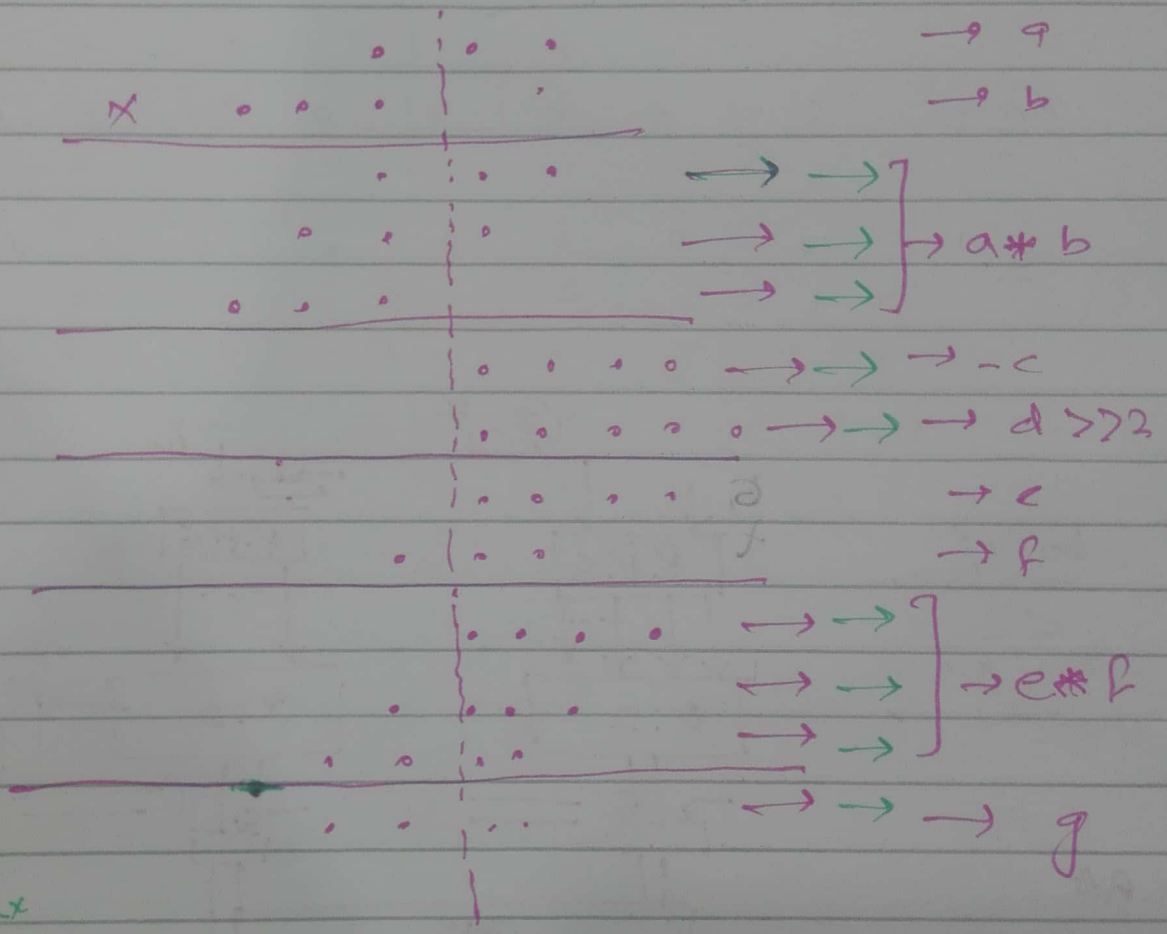 . . . → a
× . . . . → b
. . . → →
. . . → → ] → a * b
. . . → →
. . . . → → → - c
. . . . . → → → d >> 2
. . . . → e
. . . → f
. . . . → →
. . . . → → ] → e * f
. . . . → →
. . . . → → → g
x